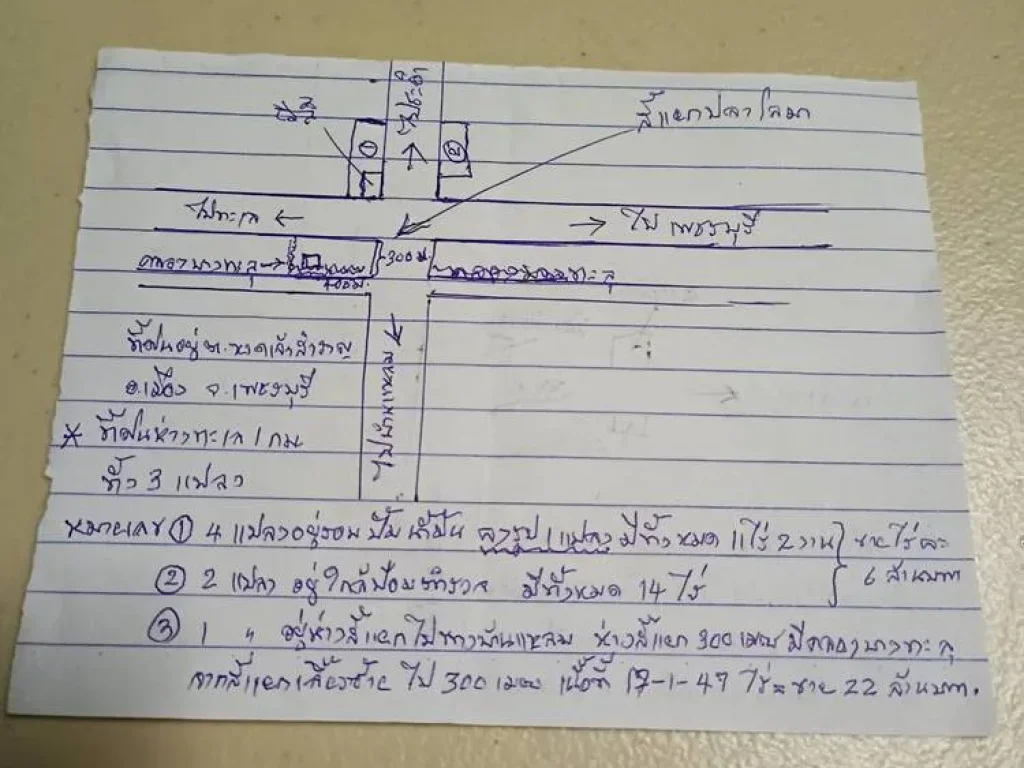 ไปชะอำ
สี่แยกปลาโลมา
①
②
ไปทะเล ←
→ ไป เพชรบุรี
คลองบางทะลุ
300 ม.
400 ม.
คลองบางทะลุ
ไปบ้านแหลม
ที่ดินอยู่ ต.หาดเจ้าสำราญ
อ.เมือง จ.เพชรบุรี
* ที่ดินห่างทะเล 1 กม
ทั้ง 3 แปลง
หมายเลข ① 4 แปลงอยู่รอบ ปั้ม น้ำมัน มีทั้งหมด 11 ไร่ 2 งาน ขายไร่ละ
② 2 แปลง อยู่ใกล้ป้อมตำรวจ มีทั้งหมด 14 ไร่ 6 ล้านบาท
③ 1 " อยู่ห่างสี่แยกไปทางบ้านแหลม ห่างสี่แยก 300 เมตร มีคลองบางทะลุ
จากสี่แยกเลี้ยวซ้าย ไป 300 เมตร เนื้อที่ 17-1-47 ไร่ ขาย 22 ล้านบาท.